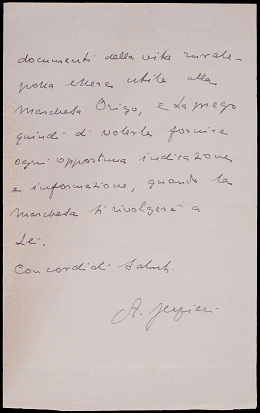 documenti della vita rurale
possa essere utile alla
Marchesa Origo, e La prego
quindi di volerle fornire
ogni opportuna indicazione
e informazione, quando la
Marchesa si rivolgerà a
Lei.
Con cordiali saluti
A.